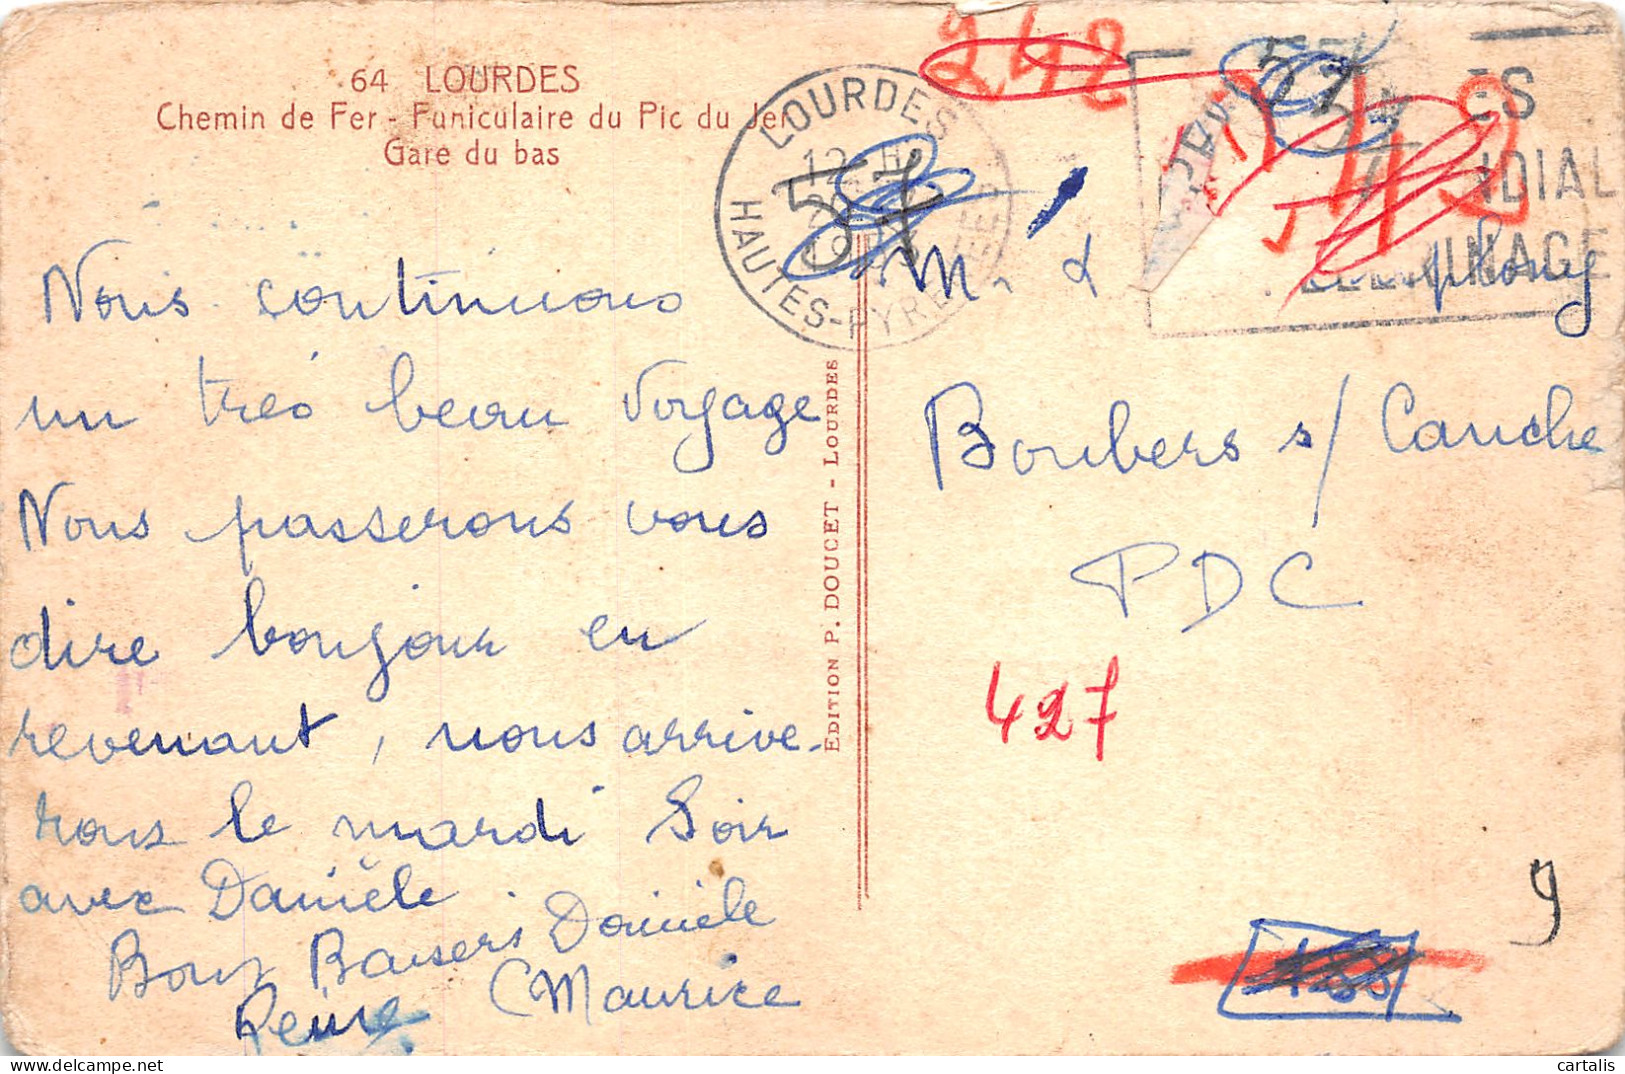 64 LOURDES
Chemin de Fer - Funiculaire du Pic du Jer
Gare du bas
Nous continuons
un très beau voyage
Nous passerons vous
dire bonjour en
revenant, nous arrive-
rons le mardi Soir
avec Danièle
Bons Baisers Danièle
Reine Maurice
EDITION P. DOUCET - LOURDES
LOURDES
12-H
HAUTES-PYRENEES
248
57
149
ES
NDIAL
INAGE
M. &
Boubers s/ Canche
PDC
427
9
cartalis